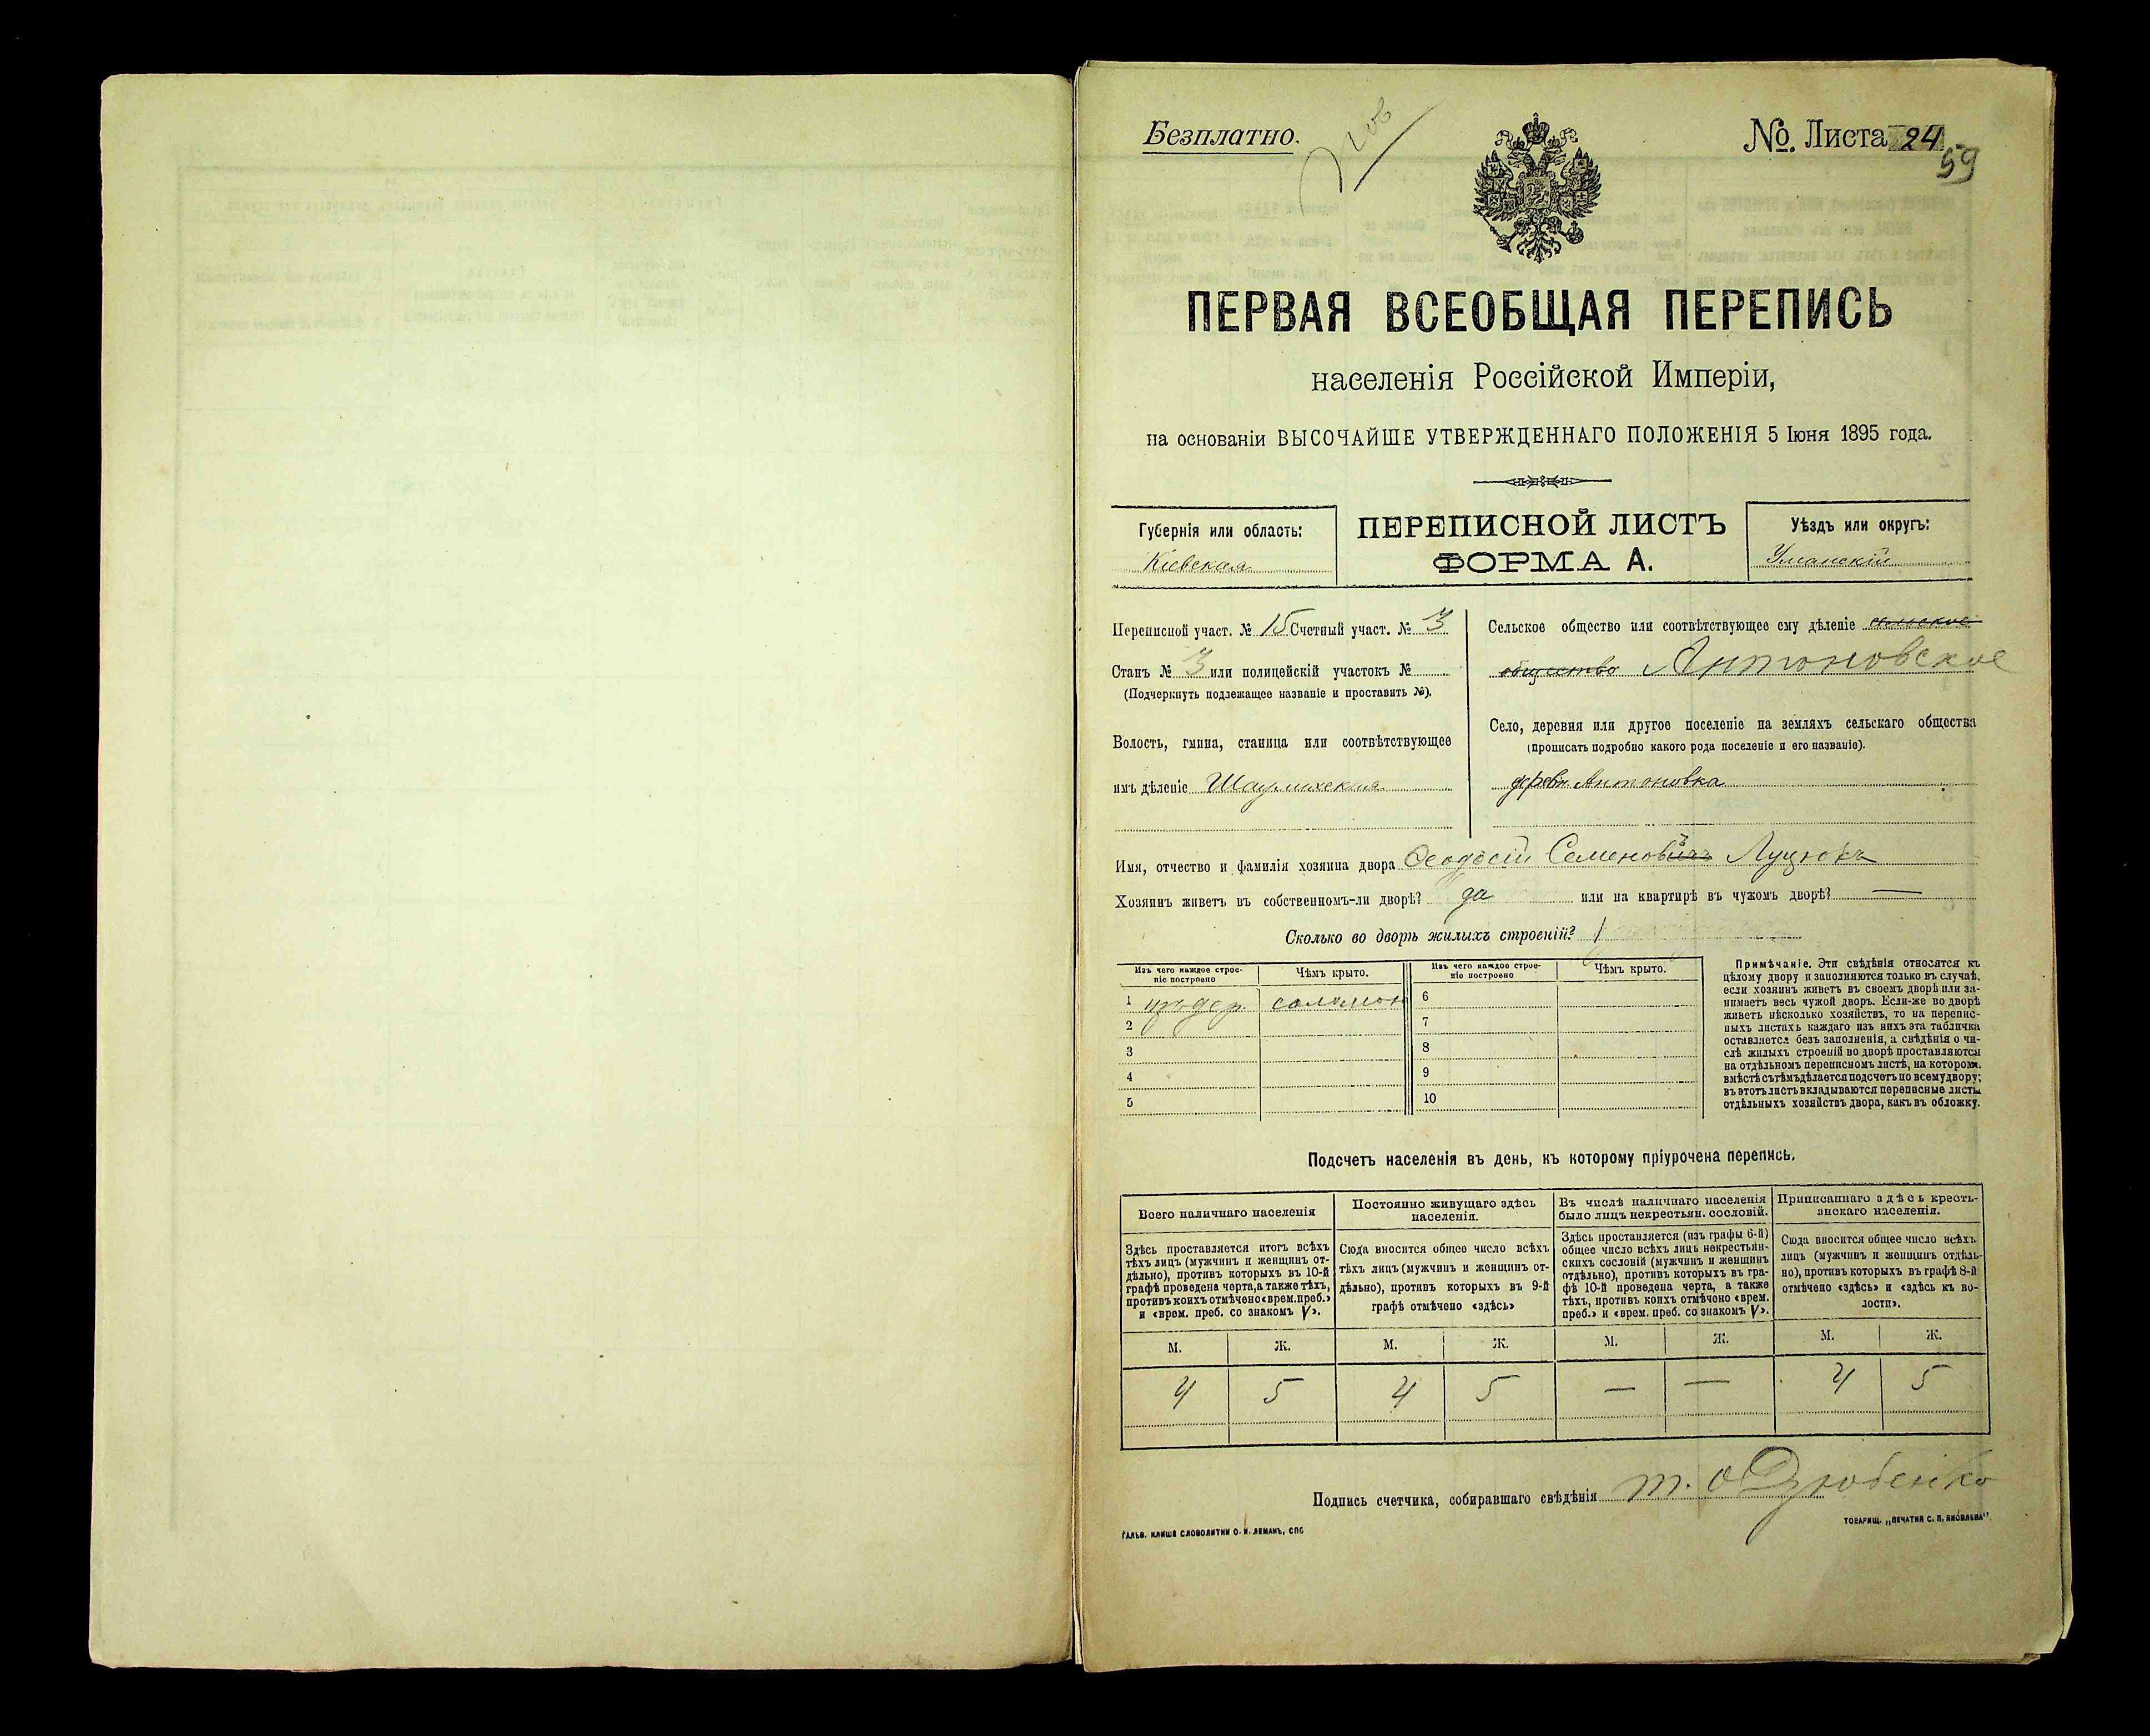 Безплатно.
№. Листа 24
59
ПЕРВАЯ ВСЕОБЩАЯ ПЕРЕПИСЬ
населенія Россійской Имперіи,
на основаніи ВЫСОЧАЙШЕ УТВЕРЖДЕННАГО ПОЛОЖЕНІЯ 5 Іюня 1895 года.
Губернія или область:
Кіевская
ПЕРЕПИСНОЙ ЛИСТЪ
ФОРМА А.
Уѣздъ или округъ:
Уманскій
Переписной участ. № 15 Счетный участ. № 3
Станъ № 3 или полицейскій участокъ №
(Подчеркнуть подлежащее названіе и проставить №).
Волость, гмина, станица или соотвѣтствующее
имъ дѣленіе
Сельское общество или соотвѣтствующее ему дѣленіе сельское
общество Антоновское
Село, деревня или другое поселеніе на земляхъ сельскаго общества
(прописать подробно какого рода поселеніе и его названіе).
Антоновка
Имя, отчество и фамилія хозяина двора Феодосій Семеновичъ Луцюкъ
Хозяинъ живетъ въ собственномъ-ли дворѣ? да или на квартирѣ въ чужомъ дворѣ? —
Сколько во дворѣ жилыхъ строеній? 1
Изъ чего каждое строе-
ніе построено
Чѣмъ крыто.
Изъ чего каждое строе-
ніе построено
Чѣмъ крыто.
1 соломою 6
2 7
3 8
4 9
5 10
Примѣчаніе. Эти свѣдѣнія относятся къ
цѣлому двору и заполняются только въ случаѣ,
если хозяинъ живетъ въ своемъ дворѣ или за-
нимаетъ весь чужой дворъ. Если-же во дворѣ
живетъ нѣсколько хозяйствъ, то на перепис-
ныхъ листахъ каждаго изъ нихъ эта табличка
оставляется безъ заполненія, а свѣдѣнія о чи-
слѣ жилыхъ строеній во дворѣ проставляются
на отдѣльномъ переписномъ листѣ, на которомъ
вмѣстѣ съ тѣмъ дѣлается подсчетъ по всему двору;
въ этотъ листъ вкладываются переписные листы
отдѣльныхъ хозяйствъ двора, какъ въ обложку.
Подсчетъ населенія въ день, къ которому пріурочена перепись.
Всего наличнаго населенія
Здѣсь проставляется итогъ всѣхъ
тѣхъ лицъ (мужчинъ и женщинъ от-
дѣльно), противъ которыхъ въ 10-й
графѣ проведена черта, а также тѣхъ,
противъ коихъ отмѣчено «врем. преб.»
и «врем. преб. со знакомъ V».
Постоянно живущаго здѣсь
населенія.
Сюда вносится общее число всѣхъ
тѣхъ лицъ (мужчинъ и женщинъ от-
дѣльно), противъ которыхъ въ 9-й
графѣ отмѣчено «здѣсь»
Въ числѣ наличнаго населенія
было лицъ некрестьян. сословій.
Здѣсь проставляется (изъ графы 6-й)
общее число всѣхъ лицъ некрестьян-
скихъ сословій (мужчинъ и женщинъ
отдѣльно), противъ которыхъ въ гра-
фѣ 10-й проведена черта, а также
тѣхъ, противъ коихъ отмѣчено «врем.
преб.» и «врем. преб. со знакомъ V».
Приписаннаго здѣсь кресть-
янскаго населенія.
Сюда вносится общее число всѣхъ
лицъ (мужчинъ и женщинъ отдѣль-
но), противъ которыхъ въ графѣ 8-й
отмѣчено «здѣсь» и «здѣсь къ во-
лости».
М. Ж. М. Ж. М. Ж. М. Ж.
4 5 4 5 — — 4 5
Подпись счетчика, собиравшаго свѣдѣнія
ГАЛЬВ. КЛИШЕ СЛОВОЛИТНИ О. И. ЛЕМАНЪ, СПБ
ТОВАРИЩ. „ПЕЧАТНЯ С. П. ЯКОВЛЕВА".